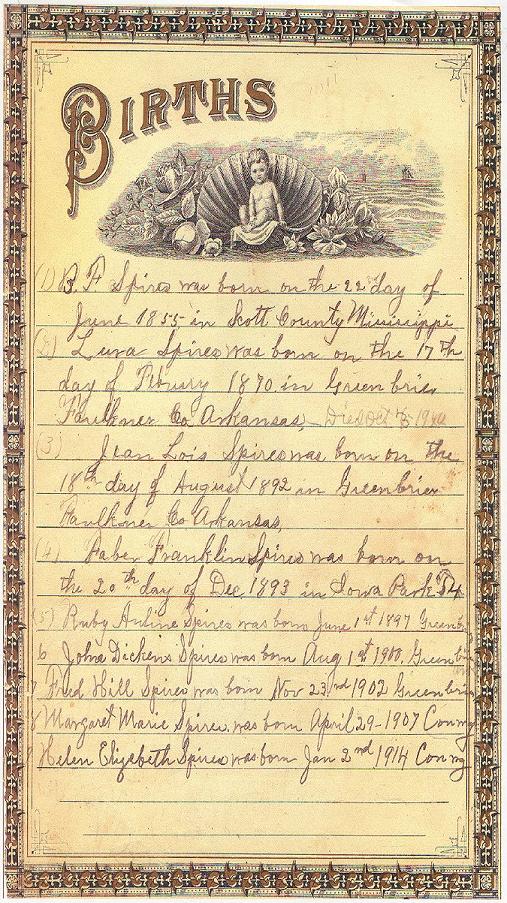 BIRTHS
(1) B. F. Spires was born on the 22nd day of
June 1855 in Scott County Missisippi
(2) Lura Spires was born on the 17th
day of Febuary 1870 in Greenbrier
Faulkner Co Arkansas, Died Oct 1940
(3) Jean Lois Spires was born on the
18th day of August 1892 in Greenbrier
Faulkner Co Arkansas,
(4) Faber Franklin Spires was born on
the 20th day of Dec, 1893 in Iowa Park
(5) Ruby Arline Spires was born June 1st 1897 Greenb
6 John Dickens Spires was born Aug 1st 1900. Greenb
7 Fred Hill Spires was born Nov 23rd 1902 Greenbrier
8 Margaret Marie Spires was born April 29-1907 Conway
9 Helen Elizabeth Spires was born Jan 2nd 1914 Conway